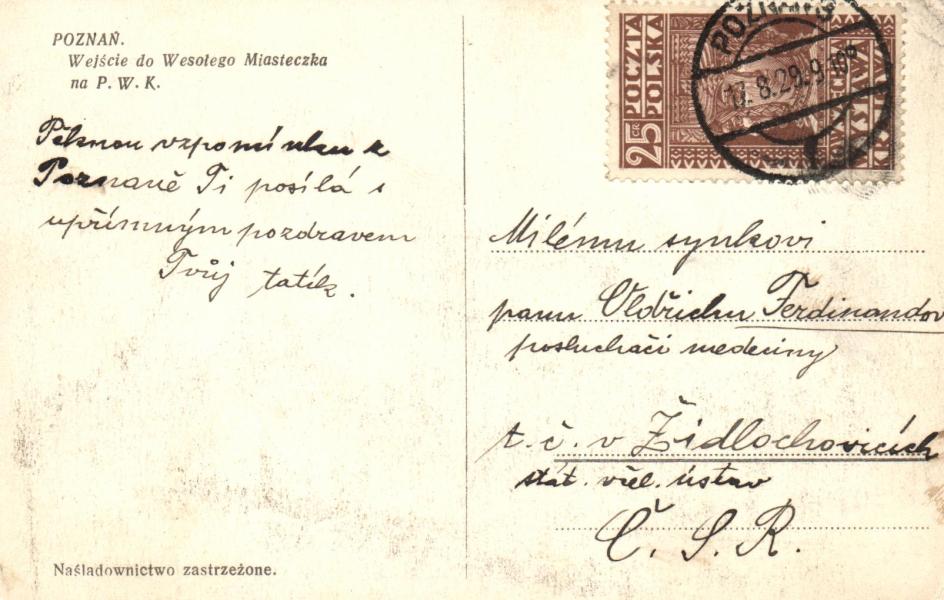 POZNAŃ.
Wejście do Wesołego Miasteczka
na P. W. K.
Pěknou vzpomínku z
Poznaně Ti posílá s
upřímným pozdravem
Tvůj tatík.
Naśladownictwo zastrzeżone.
POCZTA
POLSKA
25 GR
POZNAŃ 3
17.8.29.9
Milému synkovi
panu Oldřichu Ferdinandov
posluchači medeciny
t. č. v Židlochovicích
stát. včel. ústav
Č. S. R.